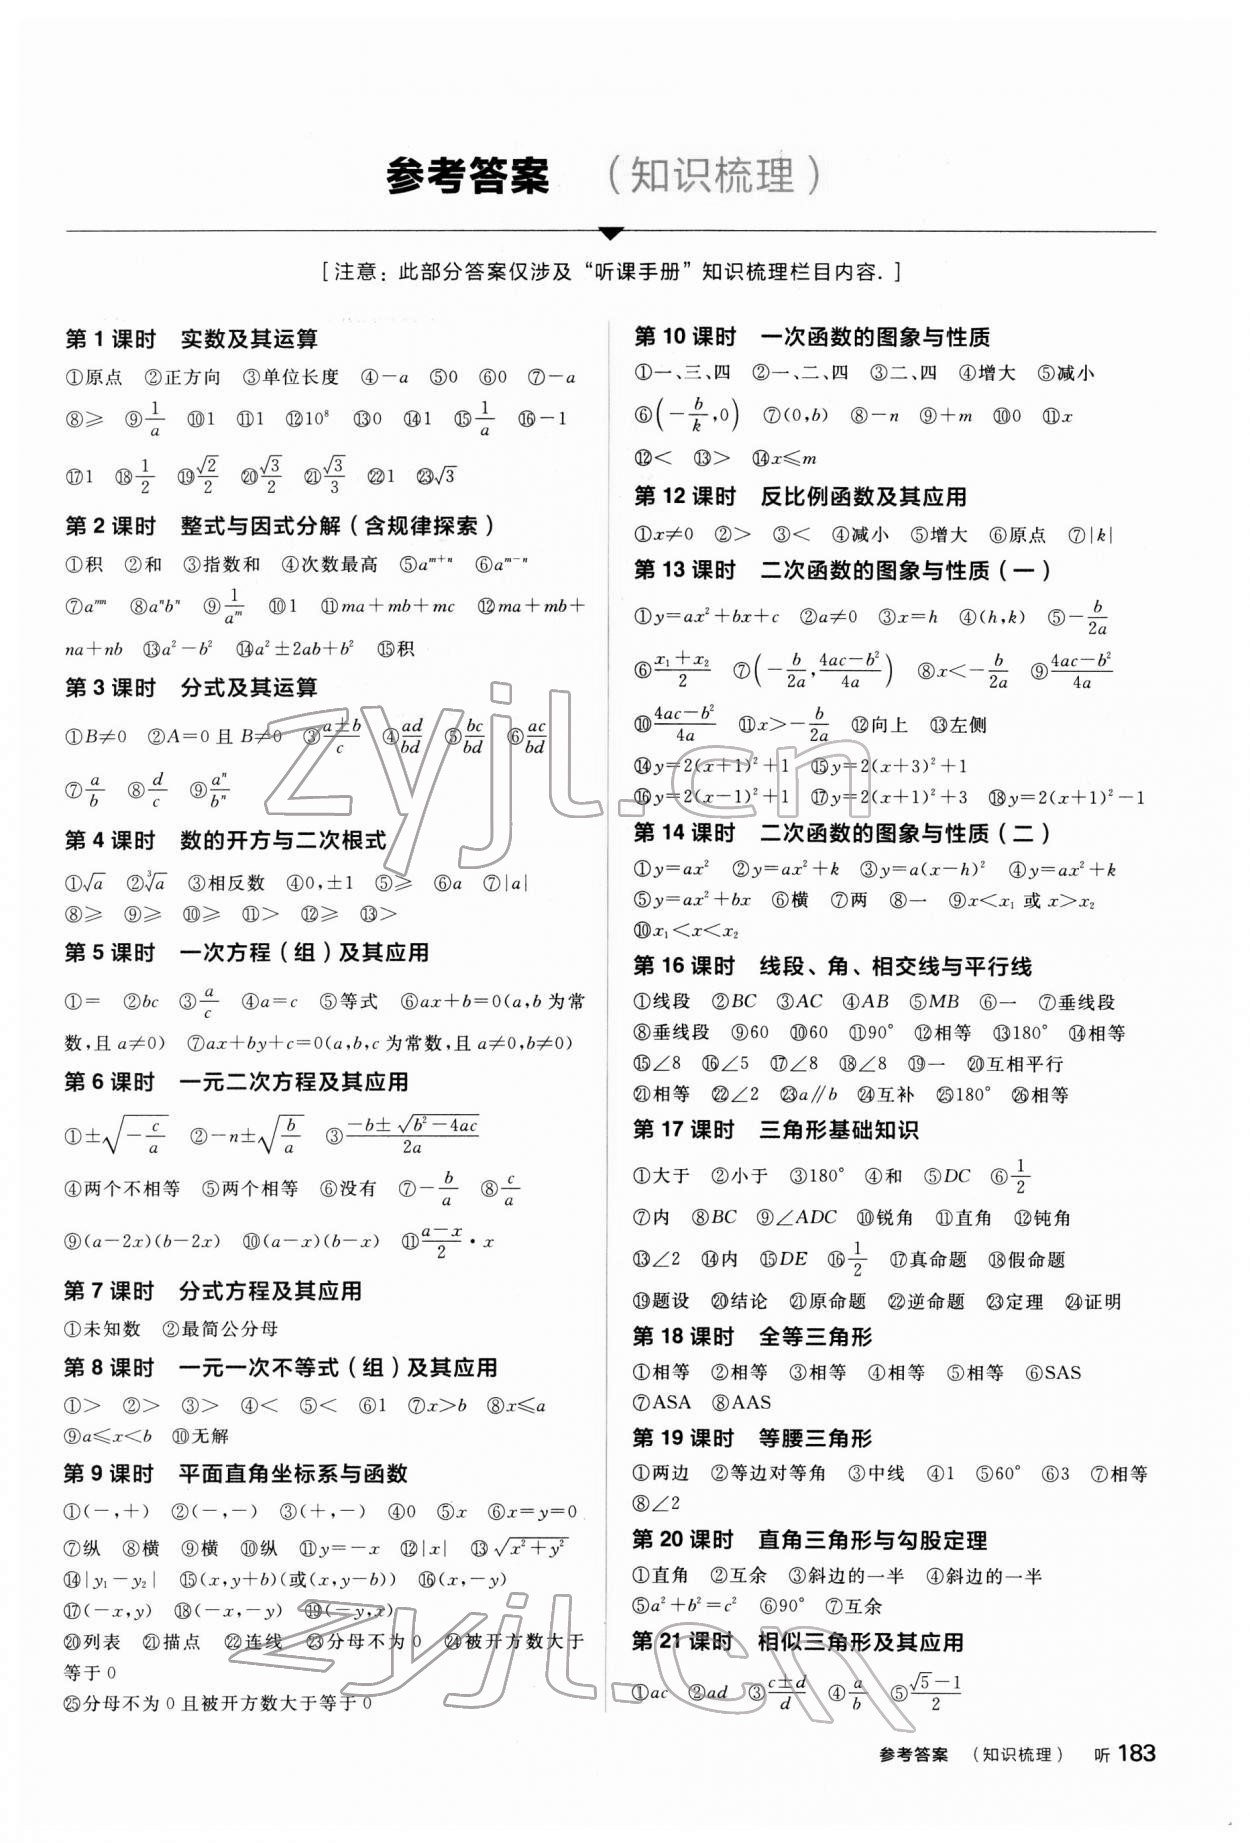 参考答案 （知识梳理）
[ 注意：此部分答案仅涉及“听课手册”知识梳理栏目内容．]
第 1 课时 实数及其运算
①原点 ②正方向 ③单位长度 ④−a ⑤0 ⑥0 ⑦−a
⑧≥ ⑨1/a ⑩1 ⑪1 ⑫10⁸ ⑬0 ⑭1 ⑮1/a ⑯−1
⑰1 ⑱1/2 ⑲√2/2 ⑳√3/2 ㉑√3/3 ㉒1 ㉓√3
第 2 课时 整式与因式分解（含规律探索）
①积 ②和 ③指数和 ④次数最高 ⑤a^(m+n) ⑥a^(m−n)
⑦a^(mn) ⑧aⁿbⁿ ⑨1/a^m ⑩1 ⑪ma+mb+mc ⑫ma+mb+
na+nb ⑬a²−b² ⑭a²±2ab+b² ⑮积
第 3 课时 分式及其运算
①B≠0 ②A=0 且 B≠0 ③(a±b)/c ④ad/bd ⑤bc/bd ⑥ac/bd
⑦a/b ⑧d/c ⑨aⁿ/bⁿ
第 4 课时 数的开方与二次根式
①√a ②∛a ③相反数 ④0,±1 ⑤≥ ⑥a ⑦|a|
⑧≥ ⑨≥ ⑩≥ ⑪> ⑫≥ ⑬>
第 5 课时 一次方程（组）及其应用
①= ②bc ③a/c ④a=c ⑤等式 ⑥ax+b=0(a,b 为常
数,且 a≠0) ⑦ax+by+c=0(a,b,c 为常数,且 a≠0,b≠0)
第 6 课时 一元二次方程及其应用
①±√(−c/a) ②−n±√(b/a) ③(−b±√(b²−4ac))/2a
④两个不相等 ⑤两个相等 ⑥没有 ⑦−b/a ⑧c/a
⑨(a−2x)(b−2x) ⑩(a−x)(b−x) ⑪(a−x)/2·x
第 7 课时 分式方程及其应用
①未知数 ②最简公分母
第 8 课时 一元一次不等式（组）及其应用
①> ②> ③> ④< ⑤< ⑥1 ⑦x>b ⑧x≤a
⑨a≤x<b ⑩无解
第 9 课时 平面直角坐标系与函数
①(−,+) ②(−,−) ③(+,−) ④0 ⑤x ⑥x=y=0
⑦纵 ⑧横 ⑨横 ⑩纵 ⑪y=−x ⑫|x| ⑬√(x²+y²)
⑭|y₁−y₂| ⑮(x,y+b)(或(x,y−b)) ⑯(x,−y)
⑰(−x,y) ⑱(−x,−y) ⑲(−y,x)
⑳列表 ㉑描点 ㉒连线 ㉓分母不为 0 ㉔被开方数大于
等于 0
㉕分母不为 0 且被开方数大于等于 0
第 10 课时 一次函数的图象与性质
①一、三、四 ②一、二、四 ③二、四 ④增大 ⑤减小
⑥(−b/k,0) ⑦(0,b) ⑧−n ⑨+m ⑩0 ⑪x
⑫< ⑬> ⑭x≤m
第 12 课时 反比例函数及其应用
①x≠0 ②> ③< ④减小 ⑤增大 ⑥原点 ⑦|k|
第 13 课时 二次函数的图象与性质（一）
①y=ax²+bx+c ②a≠0 ③x=h ④(h,k) ⑤−b/2a
⑥(x₁+x₂)/2 ⑦(−b/2a,(4ac−b²)/4a) ⑧x<−b/2a ⑨(4ac−b²)/4a
⑩(4ac−b²)/4a ⑪x>−b/2a ⑫向上 ⑬左侧
⑭y=2(x+1)²+1 ⑮y=2(x+3)²+1
⑯y=2(x−1)²+1 ⑰y=2(x+1)²+3 ⑱y=2(x+1)²−1
第 14 课时 二次函数的图象与性质（二）
①y=ax² ②y=ax²+k ③y=a(x−h)² ④y=ax²+k
⑤y=ax²+bx ⑥横 ⑦两 ⑧一 ⑨x<x₁ 或 x>x₂
⑩x₁<x<x₂
第 16 课时 线段、角、相交线与平行线
①线段 ②BC ③AC ④AB ⑤MB ⑥一 ⑦垂线段
⑧垂线段 ⑨60 ⑩60 ⑪90° ⑫相等 ⑬180° ⑭相等
⑮∠8 ⑯∠5 ⑰∠8 ⑱∠8 ⑲一 ⑳互相平行
㉑相等 ㉒∠2 ㉓a∥b ㉔互补 ㉕180° ㉖相等
第 17 课时 三角形基础知识
①大于 ②小于 ③180° ④和 ⑤DC ⑥1/2
⑦内 ⑧BC ⑨∠ADC ⑩锐角 ⑪直角 ⑫钝角
⑬∠2 ⑭内 ⑮DE ⑯1/2 ⑰真命题 ⑱假命题
⑲题设 ⑳结论 ㉑原命题 ㉒逆命题 ㉓定理 ㉔证明
第 18 课时 全等三角形
①相等 ②相等 ③相等 ④相等 ⑤相等 ⑥SAS
⑦ASA ⑧AAS
第 19 课时 等腰三角形
①两边 ②等边对等角 ③中线 ④1 ⑤60° ⑥3 ⑦相等
⑧∠2
第 20 课时 直角三角形与勾股定理
①直角 ②互余 ③斜边的一半 ④斜边的一半
⑤a²+b²=c² ⑥90° ⑦互余
第 21 课时 相似三角形及其应用
①ac ②ad ③(c±d)/d ④a/b ⑤(√5−1)/2
参考答案 （知识梳理） 听 183
zyjl.cn
zyjl.cn